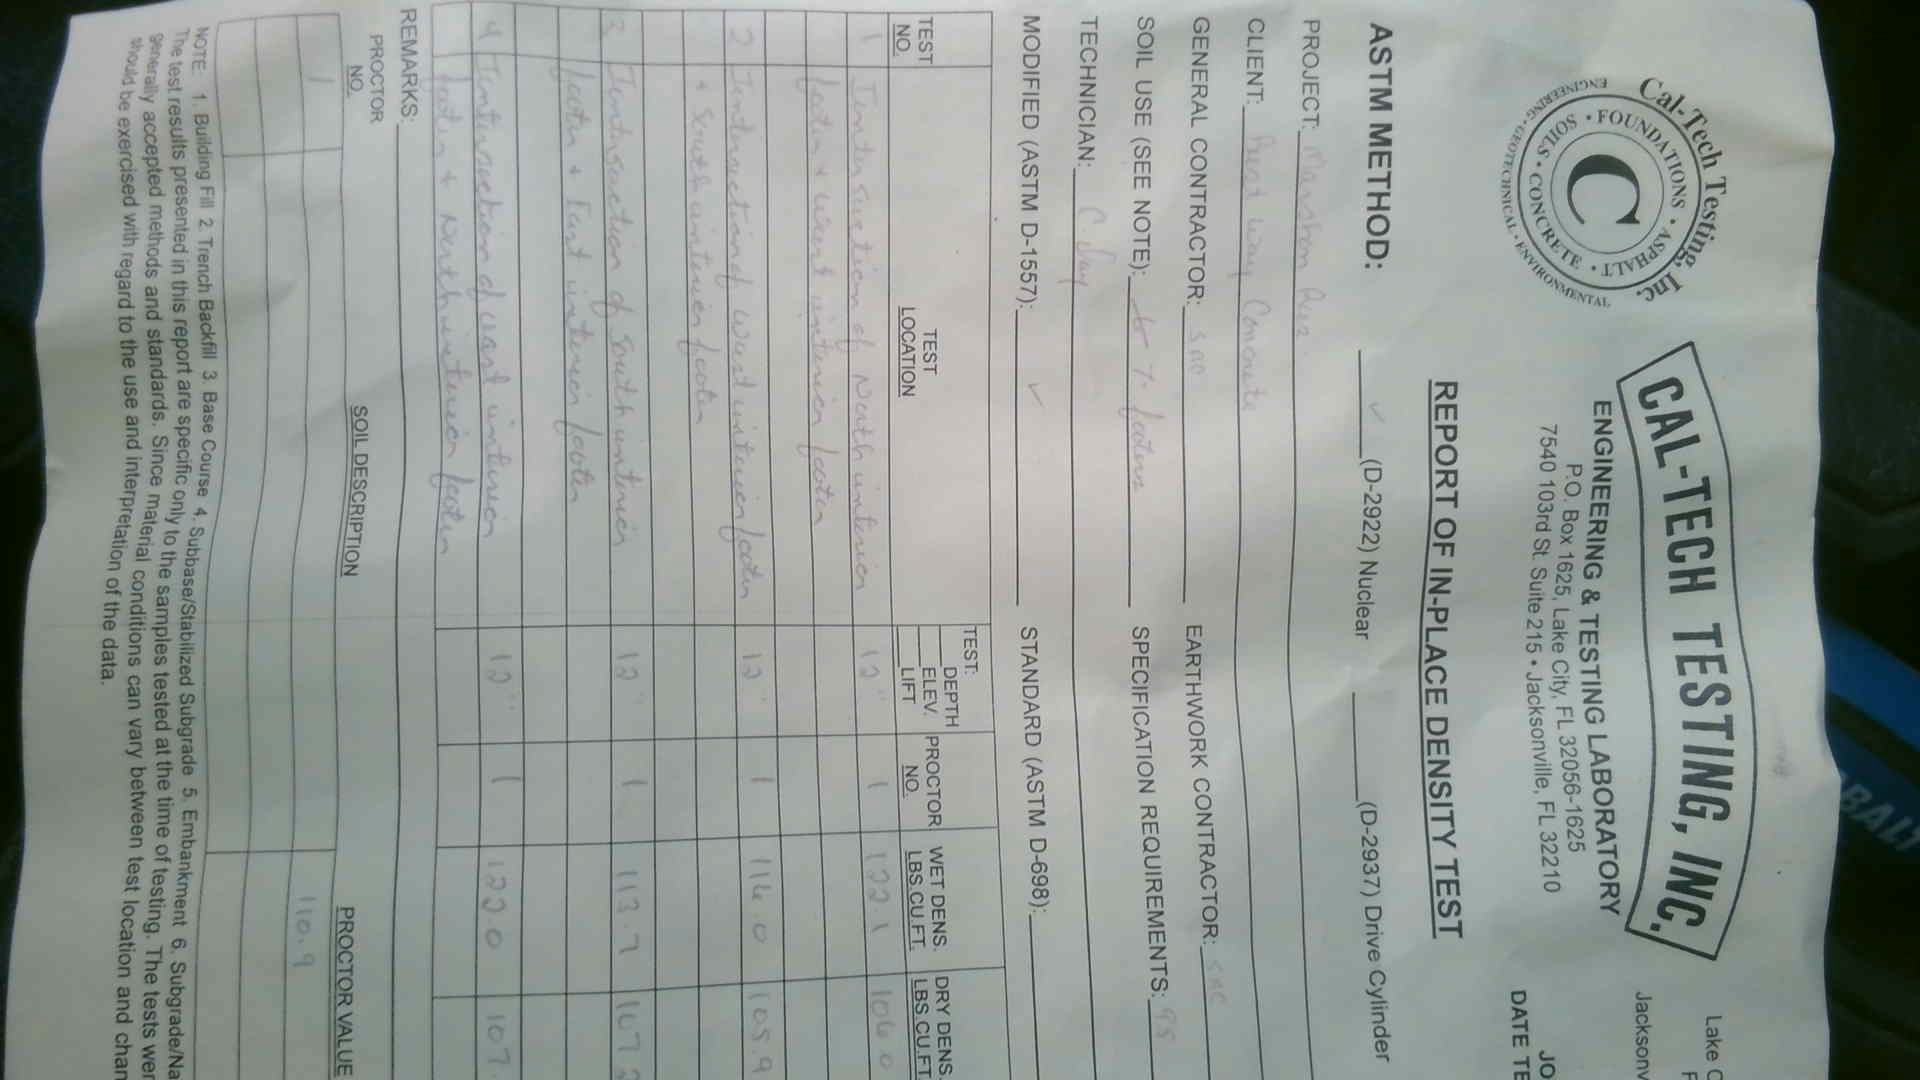 Cal-Tech Testing, Inc.
ENGINEERING • GEOTECHNICAL • ENVIRONMENTAL
SOILS • FOUNDATIONS • ASPHALT • CONCRETE
C
CAL-TECH TESTING, INC.
ENGINEERING & TESTING LABORATORY
P.O. Box 1625, Lake City, FL 32056-1625
7540 103rd St. Suite 215 • Jacksonville, FL 32210
Lake C
Jacksonv
JO
DATE TE
REPORT OF IN-PLACE DENSITY TEST
ASTM METHOD: ✓ (D-2922) Nuclear (D-2937) Drive Cylinder
PROJECT: Res.
CLIENT: Best Way Concrete
GENERAL CONTRACTOR: EARTHWORK CONTRACTOR:
SOIL USE (SEE NOTE): 7. footers SPECIFICATION REQUIREMENTS: 95
TECHNICIAN: C. Day
MODIFIED (ASTM D-1557): ✓ STANDARD (ASTM D-698):
TEST NO. TEST LOCATION TEST: DEPTH ELEV. LIFT PROCTOR NO. WET DENS. LBS.CU.FT. DRY DENS. LBS.CU.FT
1 Intersection of North interior 12" 1 122.1 106.0
footer + West interior footer
2 Intersection of West interior footer 12" 1 116.0 105.9
+ South interior footer
3 Intersection of South interior 12" 1 113.7 107.2
footer + East interior footer
4 Intersection of east interior 12" 1 122.0 107.
footer + North interior footer
REMARKS:
PROCTOR NO. SOIL DESCRIPTION PROCTOR VALUE
1 110.9
NOTE: 1. Building Fill 2. Trench Backfill 3. Base Course 4. Subbase/Stabilized Subgrade 5. Embankment 6. Subgrade/Na
The test results presented in this report are specific only to the samples tested at the time of testing. The tests wer
generally accepted methods and standards. Since material conditions can vary between test location and chan
should be exercised with regard to the use and interpretation of the data.
BALT